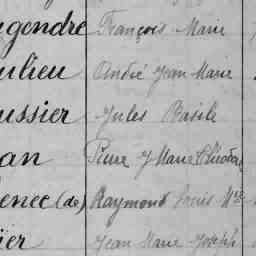 gendre François Marie
ulieu André Jean Marie
ussier Jules Basile
an Pierre J Marie
ence (de) Raymond Louis Mie
ier Jean Marie Joseph